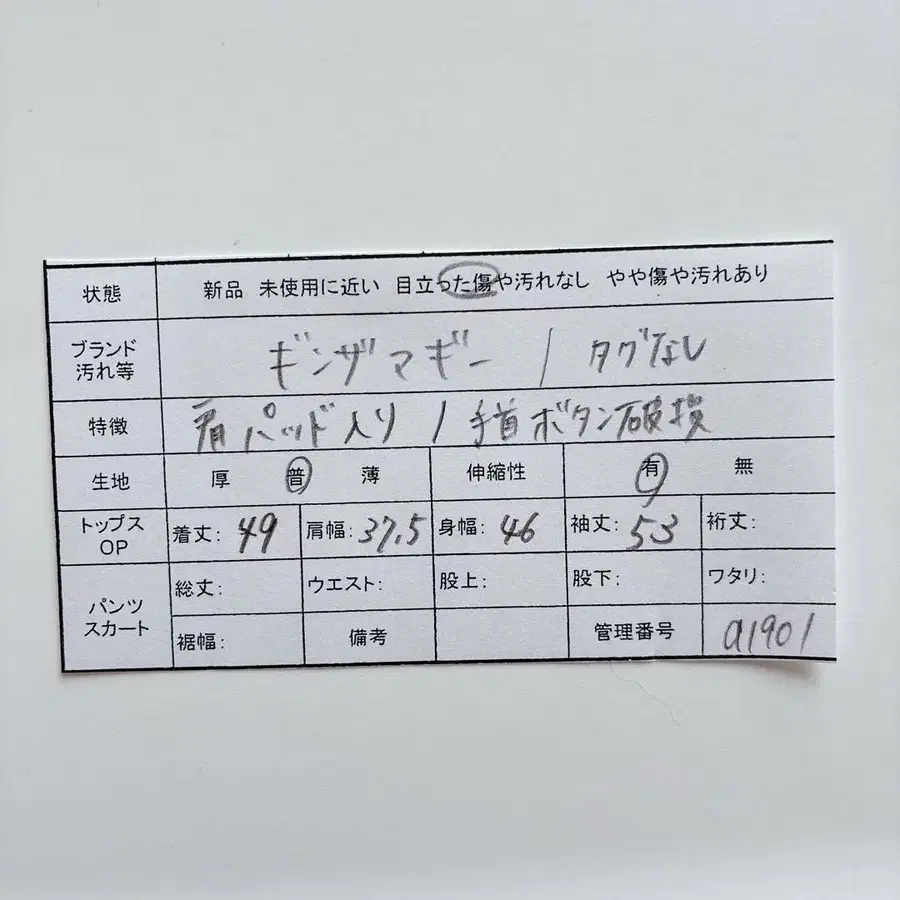 状態 新品 未使用に近い 目立った傷や汚れなし やや傷や汚れあり
ブランド
汚れ等 ギンザマギー / タグなし
特徴 肩パッド入り / 手首ボタン破損
生地 厚 普 薄 伸縮性 有 無
トップス
OP 着丈: 49 肩幅: 37.5 身幅: 46 袖丈: 53 裄丈:
パンツ
スカート 総丈: ウエスト: 股上: 股下: ワタリ:
裾幅: 備考 管理番号 a1901